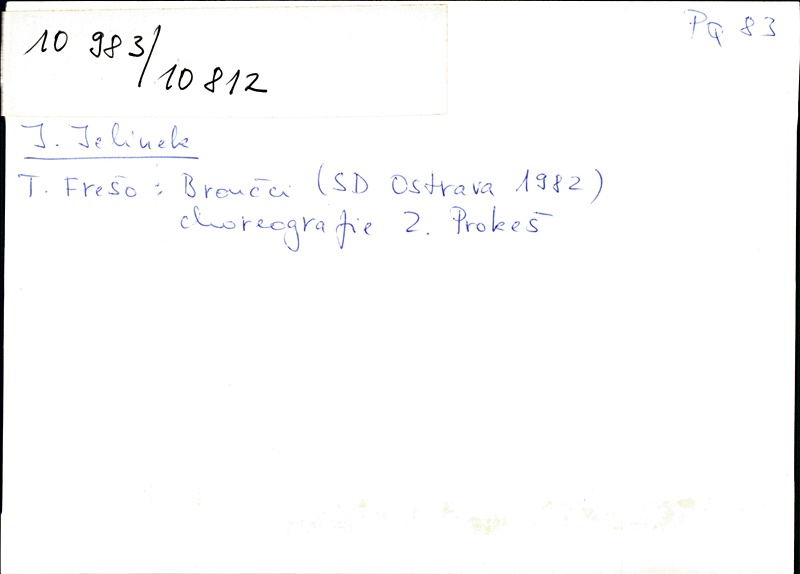 10 983/
10 812
Pq 83
J. Jelinek
T. Frešo: Broučci (SD Ostrava 1982)
choreografie Z. Prokeš